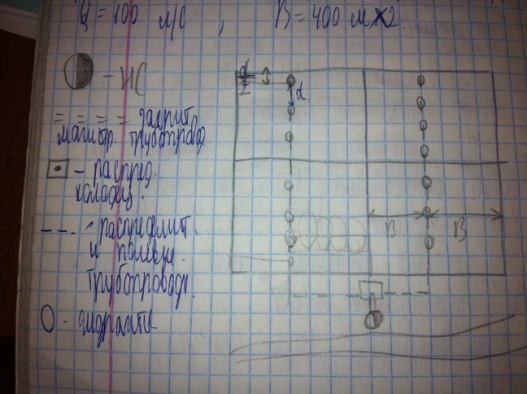 q = 100 л/с , В = 400 м x 2.
- НС
= = = = закрит.
магистр. трубопровод
- распред.
колодец.
--- - распределит.
и полевые
трубопроводы.
O - гидранты
d
2
d
B
B